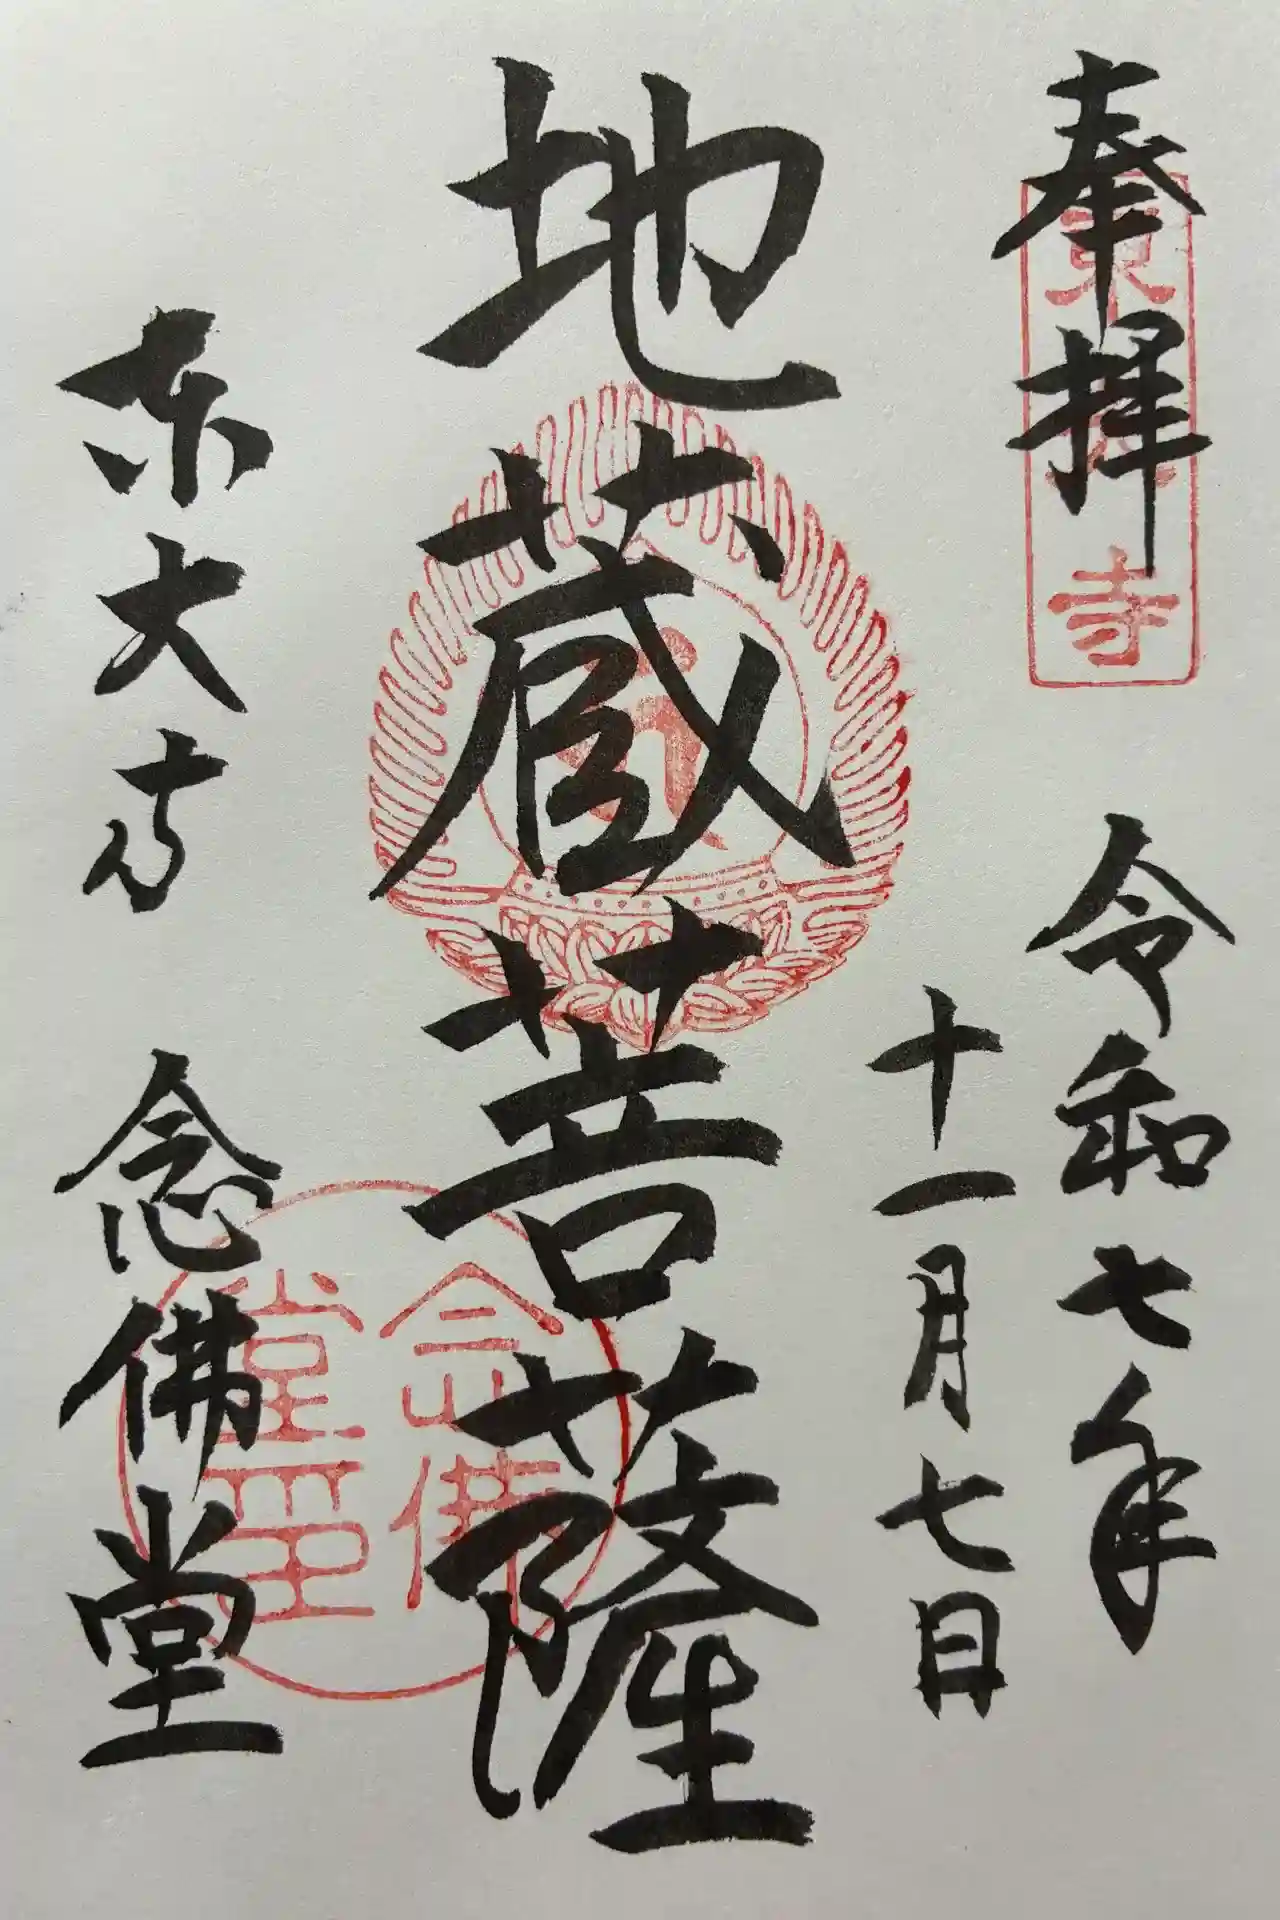 奉拝
令和七年
十一月七日
地蔵菩薩
东大寺
念佛堂
東大寺
念佛堂印